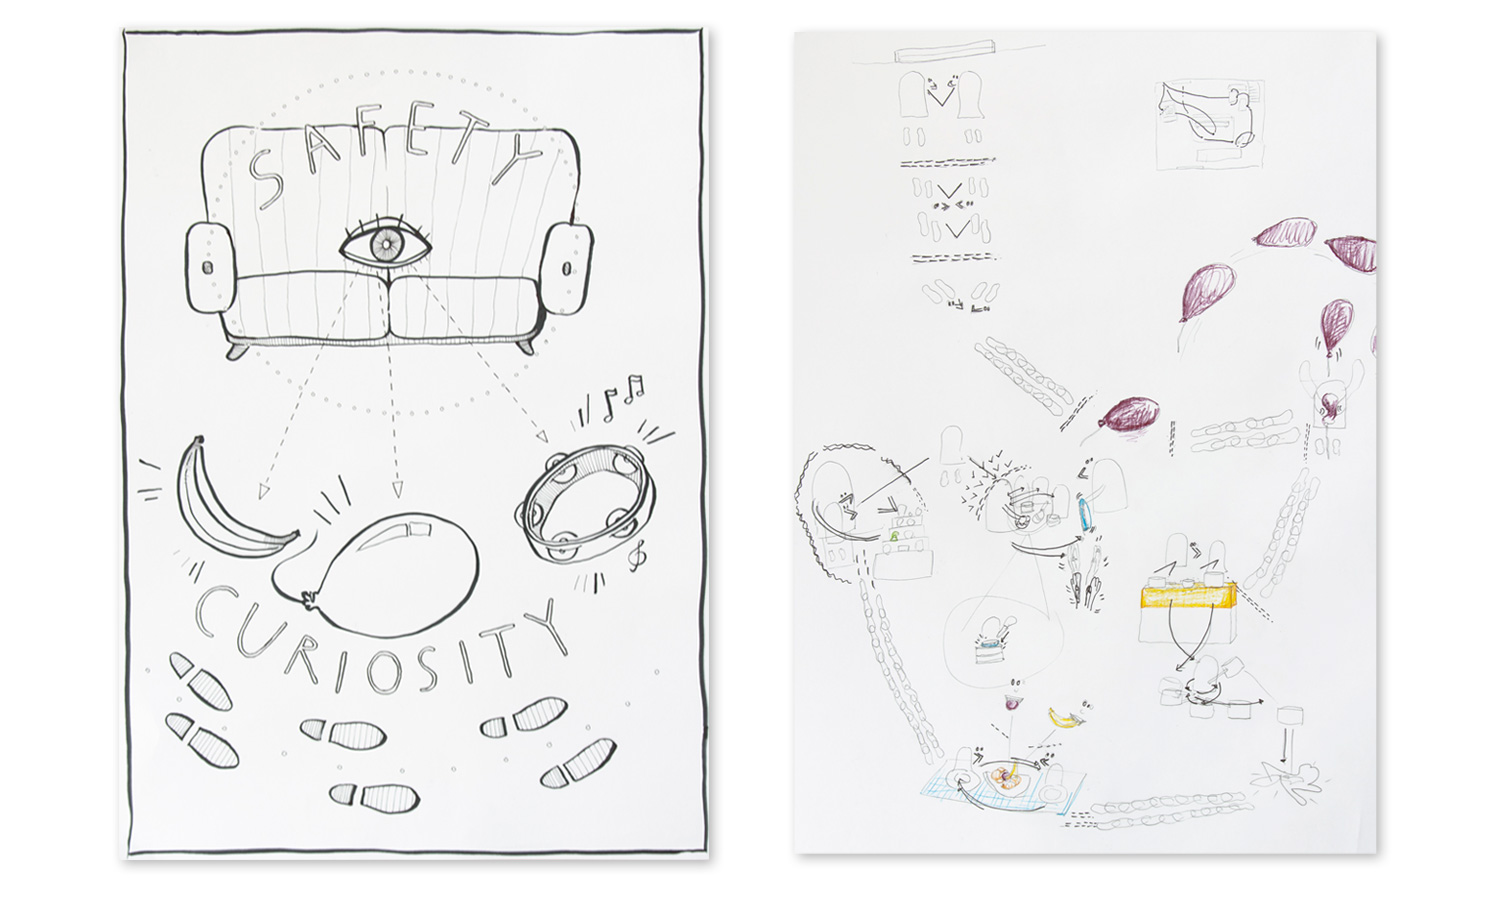 SAFETY
CURIOSITY